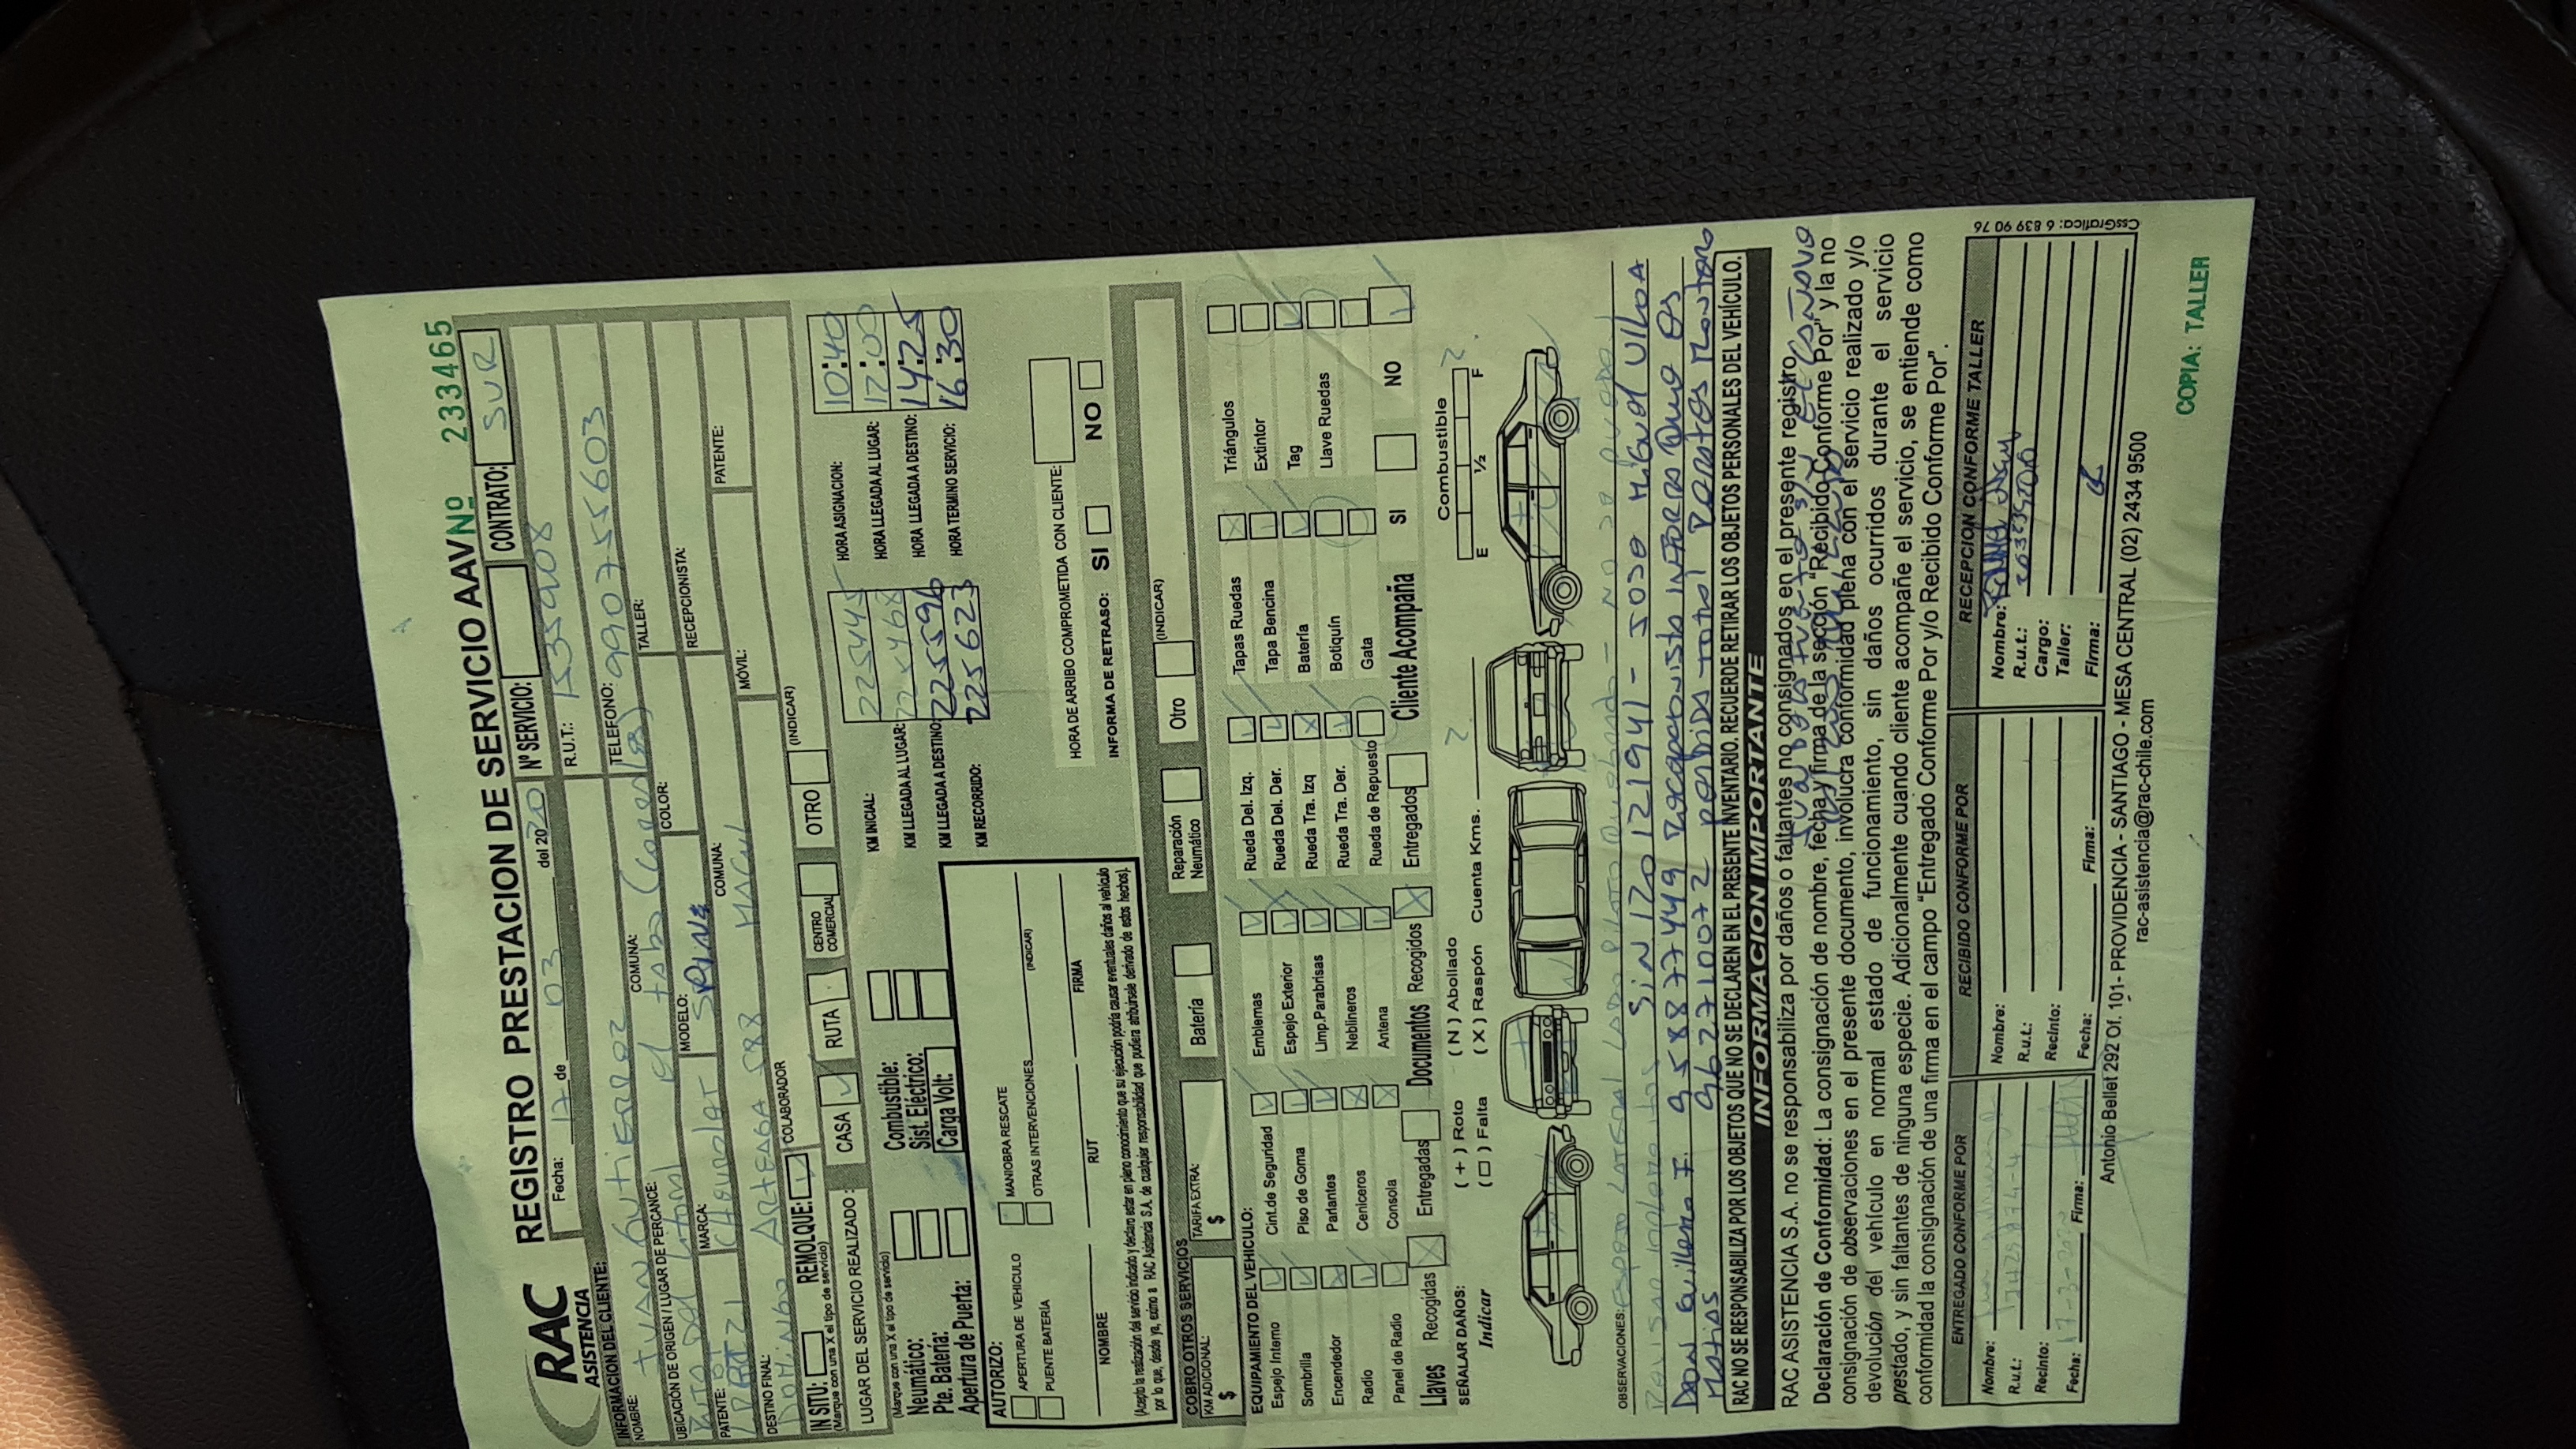 RAC
ASISTENCIA
REGISTRO PRESTACION DE SERVICIO AAV Nº 233465
Fecha: 17 de 03 del 2020 Nº SERVICIO: CONTRATO: SUR
INFORMACION DEL CLIENTE:
NOMBRE: IVAN GutiERREZ R.U.T.:
UBICACIÓN DE ORIGEN / LUGAR DE PERCANCE: COMUNA: el tabo TELEFONO: 990755603
PATENTE: MARCA: Chevrolet MODELO: SPIN COLOR: TALLER:
DESTINO FINAL: DOMINGO ARTEAGA 588 COMUNA: MACUL RECEPCIONISTA:
COLABORADOR MÓVIL: PATENTE:
IN SITU: REMOLQUE:
(Marque con una X el tipo de servicio)
LUGAR DEL SERVICIO REALIZADO: CASA RUTA CENTRO COMERCIAL OTRO (INDICAR)
(Marque con una X el tipo de servicio)
Neumático: Combustible:
Pte. Bateria: Sist. Eléctrico:
Apertura de Puerta: Carga Volt:
KM INICIAL: 225445 HORA ASIGNACION: 10:40
KM LLEGADA AL LUGAR: HORA LLEGADA AL LUGAR: 12:00
KM LLEGADA A DESTINO: 225596 HORA LLEGADA A DESTINO: 14:25
KM RECORRIDO: 225623 HORA TERMINO SERVICIO: 16:30
AUTORIZO:
APERTURA DE VEHICULO MANIOBRA RESCATE
PUENTE BATERÍA OTRAS INTERVENCIONES (INDICAR)
NOMBRE RUT FIRMA
(Acepto la realización del servicio indicado y declaro estar en pleno conocimiento que su ejecución podría causar eventuales daños al vehículo
por lo que, desde ya, eximo a RAC Asistencia S.A. de cualquier responsabilidad que pudiera atribuírsele derivado de estos hechos).
HORA DE ARRIBO COMPROMETIDA CON CLIENTE:
INFORMA DE RETRASO: SI NO
COBRO OTROS SERVICIOS
KM ADICIONAL: $ TARIFA EXTRA: $ Batería Reparación Neumático Otro (INDICAR)
EQUIPAMIENTO DEL VEHICULO:
Espejo Interno Cint.de Seguridad Emblemas Rueda Del. Izq. Tapas Ruedas Triángulos
Sombrilla Piso de Goma Espejo Exterior Rueda Del. Der. Tapa Bencina Extintor
Encendedor Parlantes Limp.Parabrisas Rueda Tra. Izq Batería Tag
Radio Ceniceros Neblineros Rueda Tra. Der. Botiquín Llave Ruedas
Panel de Radio Consola Antena Rueda de Repuesto Gata
Llaves Recogidas Entregadas Documentos Recogidos Entregados Cliente Acompaña SI NO
SEÑALAR DAÑOS: ( + ) Roto ( N ) Abollado
Indicar ( □ ) Falta ( X ) Raspón Cuenta Kms. Combustible
E ½ F
OBSERVACIONES: ESPEJO LATERAL LADO PILOTO
SIN 12012 1941 - JOSE MIGUEL ULLOA
DON Guillermo F. 958877449
Matias 962710072 perdida total
RAC NO SE RESPONSABILIZA POR LOS OBJETOS QUE NO SE DECLAREN EN EL PRESENTE INVENTARIO. RECUERDE RETIRAR LOS OBJETOS PERSONALES DEL VEHÍCULO.
INFORMACION IMPORTANTE
RAC ASISTENCIA S.A. no se responsabiliza por daños o faltantes no consignados en el presente registro.
Declaración de Conformidad: La consignación de nombre, fecha y firma de la secón "Recibido Conforme Por" y la no
consignación de observaciones en el presente documento, involucra conformidad plena con el servicio realizado y/o
devolución del vehículo en normal estado de funcionamiento, sin daños ocurridos durante el servicio
prestado, y sin faltantes de ninguna especie. Adicionalmente cuando cliente acompañe el servicio, se entiende como
conformidad la consignación de una firma en el campo "Entregado Conforme Por y/o Recibido Conforme Por".
ENTREGADO CONFORME POR RECIBIDO CONFORME POR RECEPCION CONFORME TALLER
Nombre: Nombre: Nombre:
R.u.t.: R.u.t.: R.u.t.:
Recinto: Recinto: Cargo:
Taller:
Fecha: 17-3-2020 Firma: Fecha: Firma: Firma:
Antonio Bellet 292 Of. 101- PROVIDENCIA - SANTIAGO - MESA CENTRAL (02) 2434 9500
rac-asistencia@rac-chile.com
CssGrafica: 6 839 90 76
COPIA: TALLER